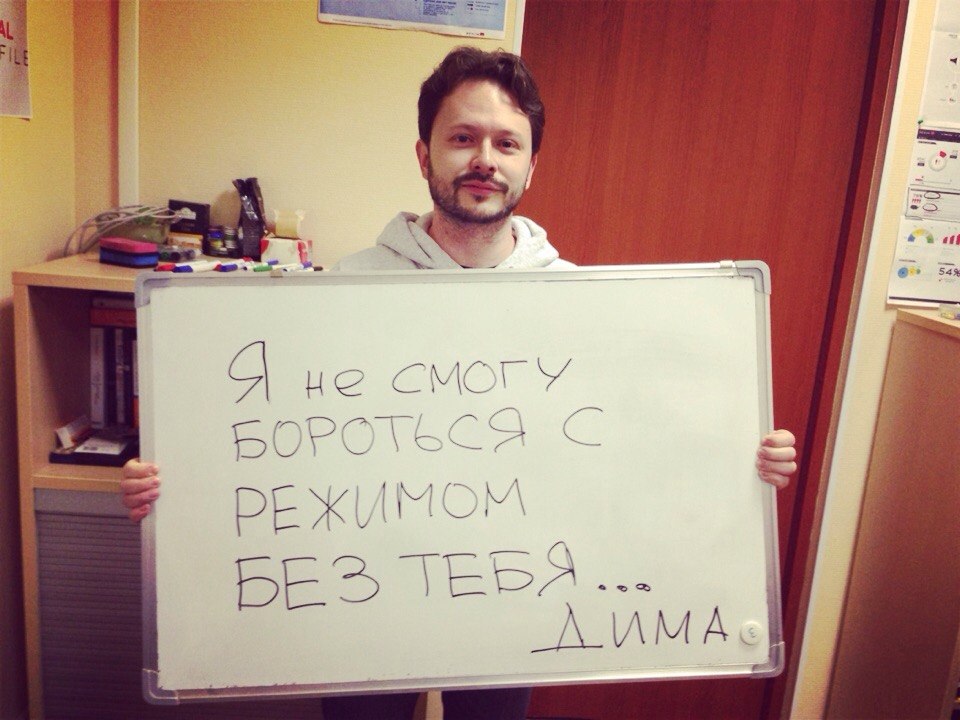 AL
FILE
Я не смогу
БОРОТЬСЯ С
РЕЖИМОМ
БЕЗ ТЕБЯ...
ДИМА
54%